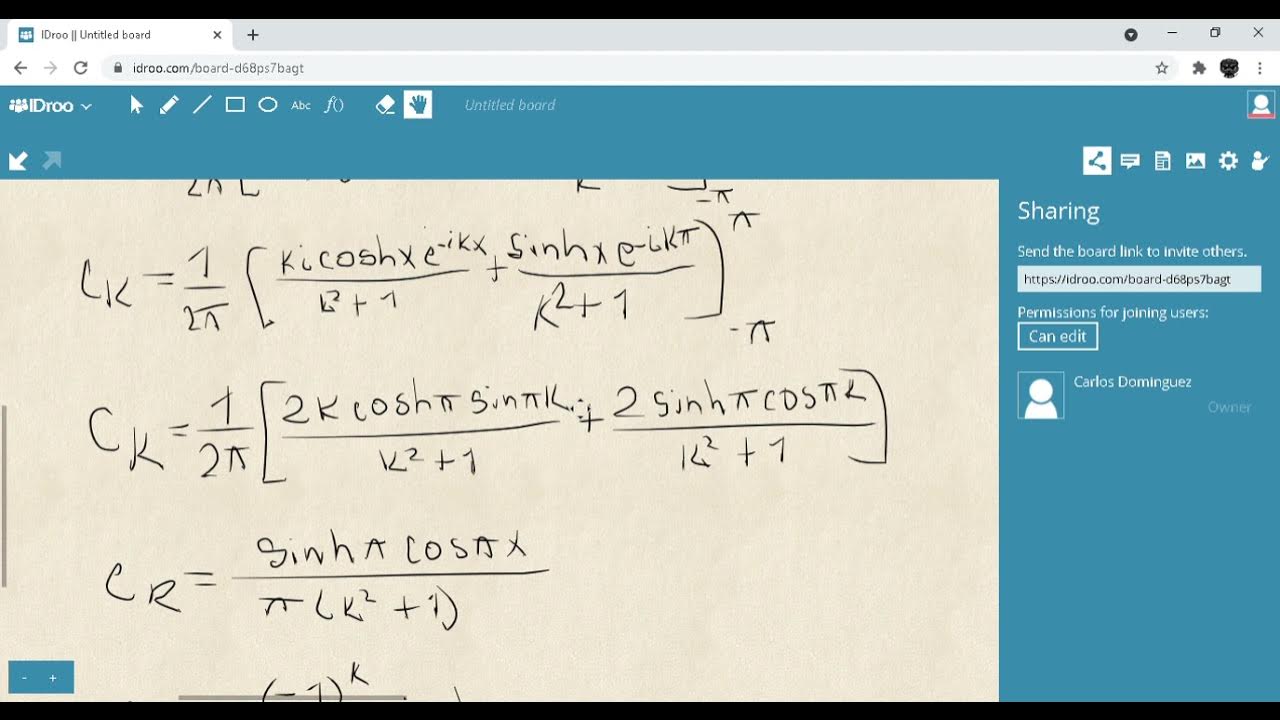 IDroo || Untitled board
idroo.com/board-d68ps7bagt
IDroo Abc f() Untitled board
2π [ K ]-π
CK = 1/2π [ (Ki coshx e^-iKx)/(K²+1) + (sinhx e^-iKπ)/(K²+1) ]^π_-π
CK = 1/2π [ (2K coshπ sinπK)/(K²+1) + (2 sinhπ cosπK)/(K²+1) ]
CK = (sinhπ cosπx)/(π(K²+1))
(-1)^K
- +
Sharing
Send the board link to invite others.
https://idroo.com/board-d68ps7bagt
Permissions for joining users:
Can edit
Carlos Dominguez
Owner